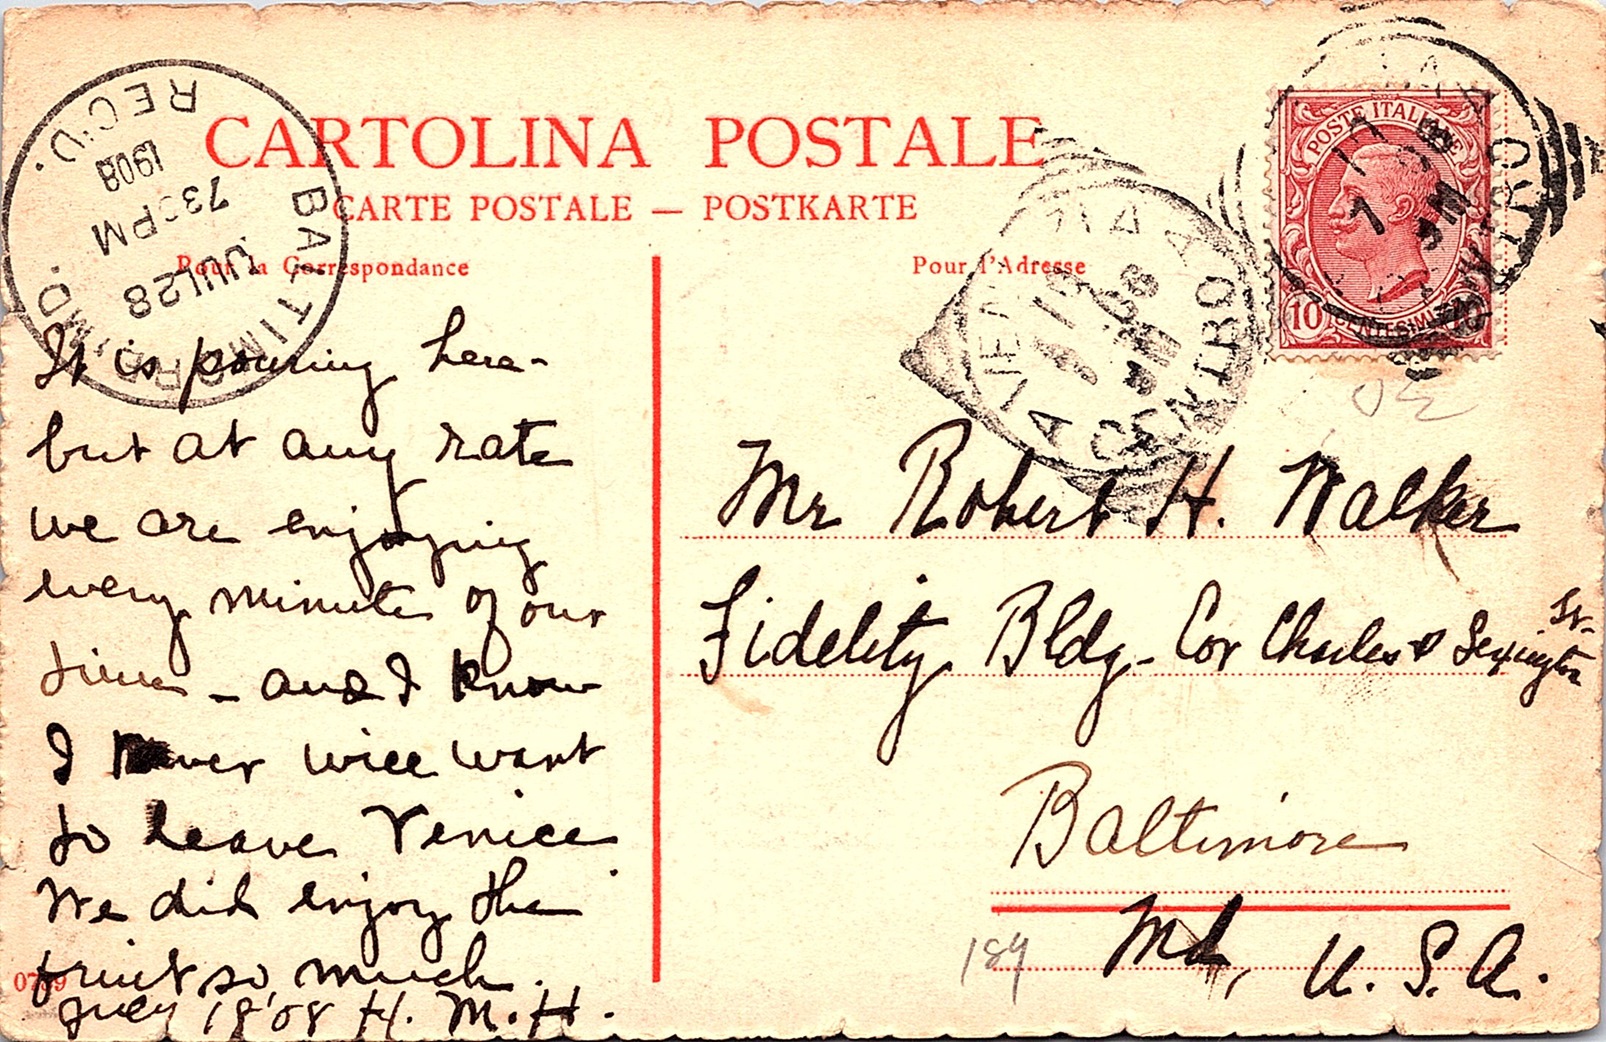 CARTOLINA POSTALE
CARTE POSTALE — POSTKARTE
Pour la Correspondance
Pour l'Adresse
BALTIMORE, MD.
REC'D.
JUL 28
730 PM
1908
POSTE ITALIANE
10 CENTESIMI 10
VENEZIA
CENTRO
It is pouring here -
but at any rate
we are enjoying
every minute of our
time - and I know
I never will want
to leave Venice.
We did enjoy the
fruit so much.
July 18 '08 H. M. H.
0789
Mr Robert H. Walker
Fidelity Bldg - Cor Charles & Lexington St-
Baltimore
Md, U. S. A.
189